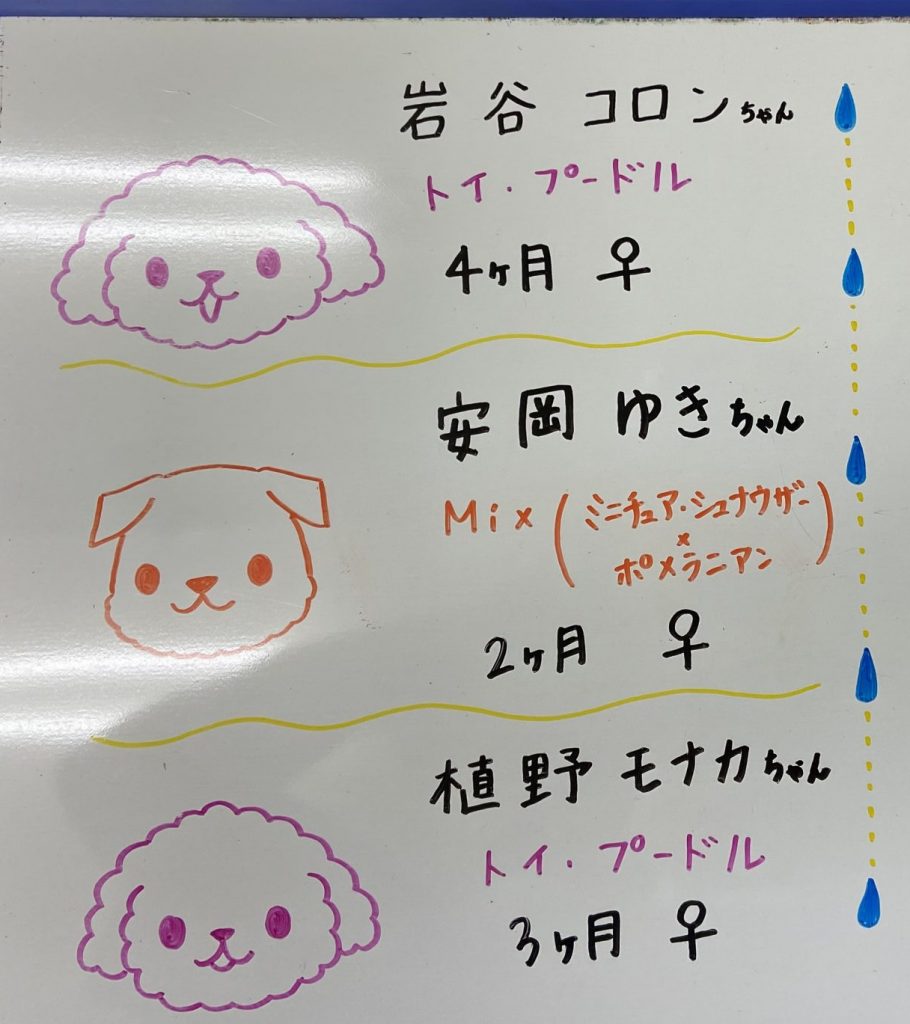 岩谷 コロンちゃん
トイ・プードル
4ヶ月 ♀
安岡 ゆきちゃん
Mix (ミニチュア・シュナウザー
×
ポメラニアン)
2ヶ月 ♀
植野 モナカちゃん
トイ・プードル
3ヶ月 ♀